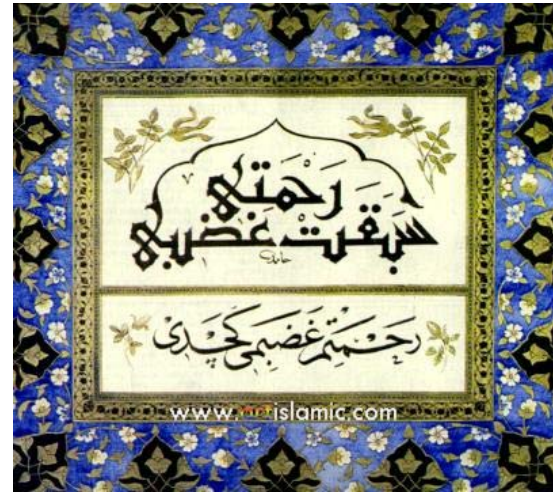 رَحْمَتِي
سَبَقَتْ غَضَبِي
حامد
رحمتم غضبمی کچدی
www.islamic.com